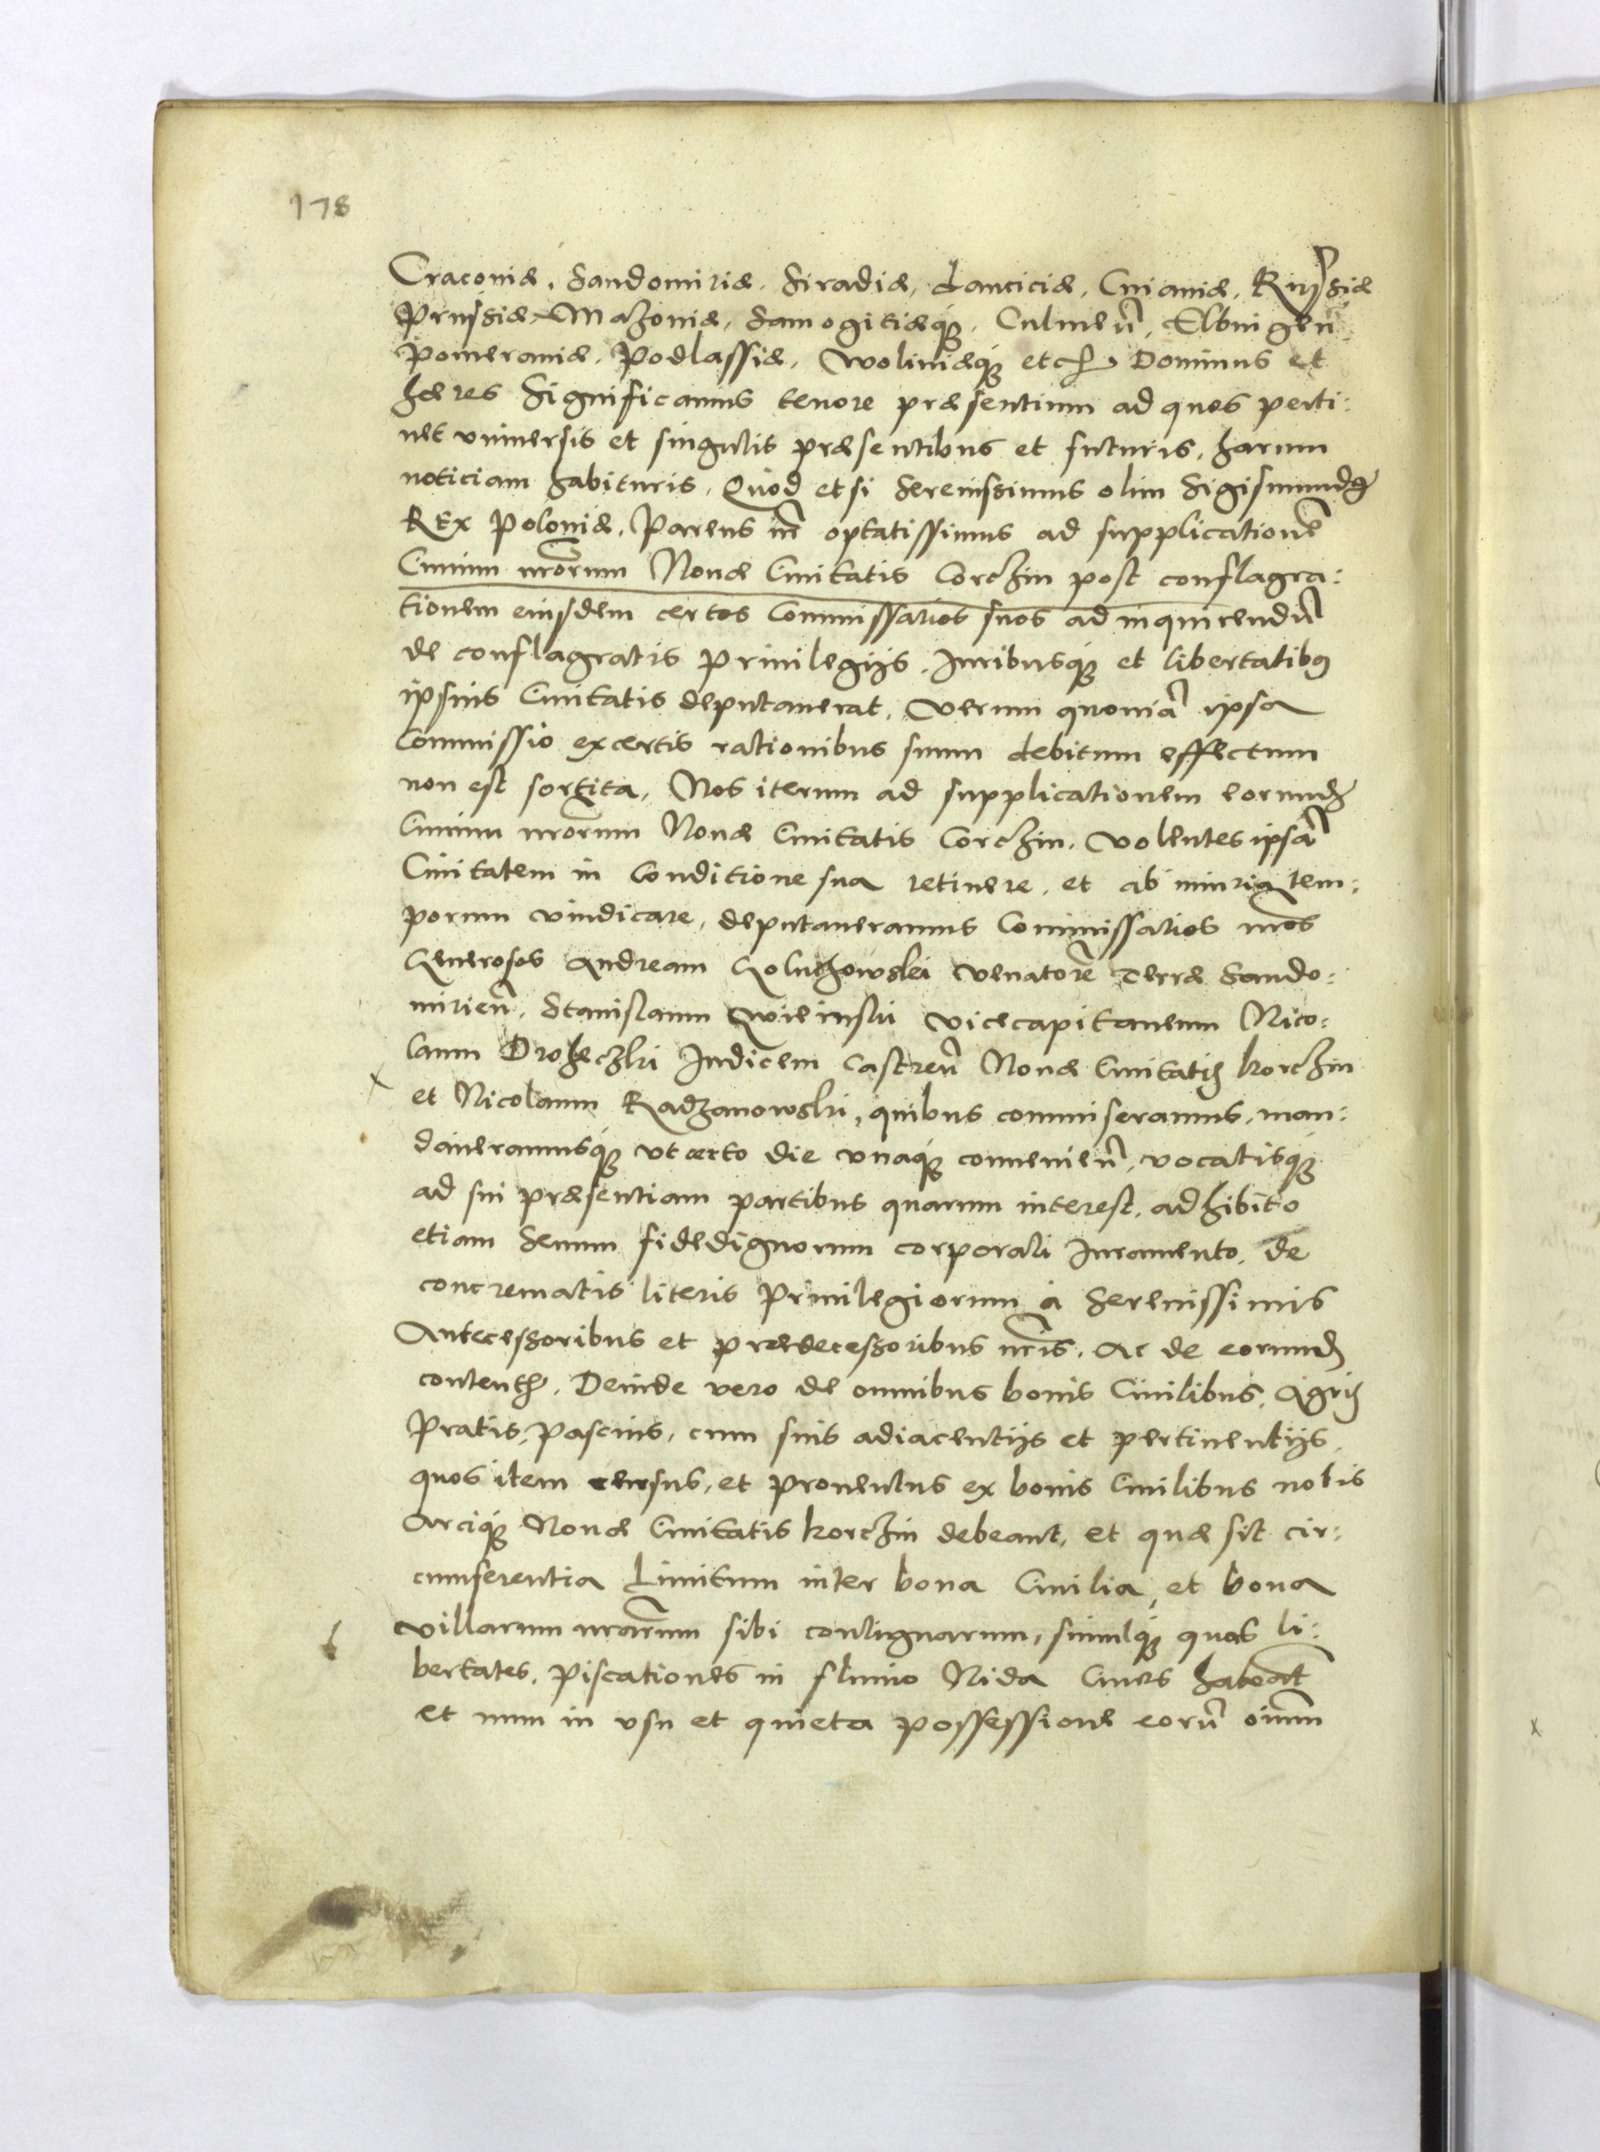 178
Craconiæ, Sandomiriæ, Siradiæ, Lanciciæ, Cuiauiæ, Russiæ
Prussiæ, Mazoniæ, Samogitiæq;, Culmeñ, Elbingeñ
Pomeraniæ, Podlassiæ, Woliniæq; etc. Dominus et
hæres Significamus tenore præsentium ad quos perti:
net vniuersis et singulis præsentibus et futuris, harum
noticiam habituris, Quod etsi Serenissimus olim Sigismundꝯ
REx Poloniæ, Parens nr̃ optatissimus ad supplicationẽ
Ciuium nr̃orum Nouæ Ciuitatis Corchin post conflagra:
tionem eiusdem certos Commissarios suos ad inquirendũ
de conflagratis Priuilegijs, Iuribusq; et libertatibꝯ
ipsius Ciuitatis deputauerat, Verum quoniã ipsa
Commissio ex certis rationibus suum debitum effectum
non est sortita, Nos iterum ad supplicationem eorundẽ
Ciuium nr̃orum Nouæ Ciuitatis Corchin, volentes ipsã
Ciuitatem in Conditione sua retinere, et ab iniuria tem:
porum vindicare, deputaueramus Commissarios nr̃os
Generosos Andream Goluchowski Venatorẽ Terræ Sando:
mirieñ, Stanislaum Wieinski Vicecapitaneum Nico:
laum Droheczki Iudicem Castreñ Nouæ Ciuitatis Korchin
et Nicolaum Radzanowski, quibus commiseramus, man:
daueramusq; vt certo die vnaq; conuenieñ, vocatisq;
ad sui præsentiam partibus quarum interest, adhibito
etiam Senum fidedignorum corporali Iuramento, de
concrematis literis Priuilegiorum à Serenissimis
Antecessoribus et prædecessoribus nr̃is, Ac de eorund
content, Deinde vero de omnibus bonis Ciuilibus, Agris
Pratis, Pascuis, cum suis adiacentijs et pertinentijs,
quos item census, et prouentus ex bonis Ciuilibus nobis
Arciq; Nouæ Ciuitatis Korchin debeant, et quæ sit cir:
cumferentia Limitum inter bona Ciuilia, et bona
villarum nr̃arum sibi contiguarum, simulq; quas li:
bertates, Piscationes in fluuio Nida Ciues habeãt
et num in vsu et quieta possessione eorũ oĩum